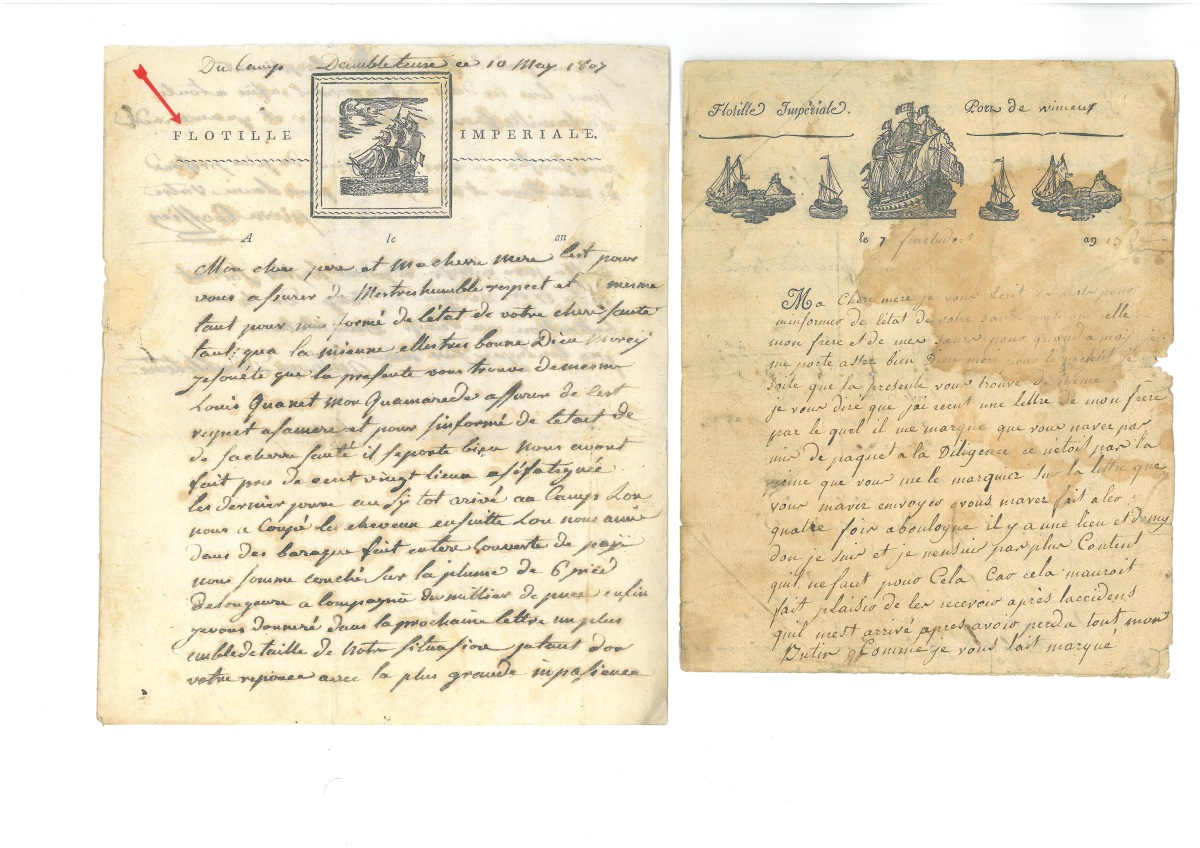 Du Camp Dambleteuse ce 10 May 1807
FLOTILLE IMPERIALE.
A le an
Mon cher pere et Ma cherre mere Cest pour
vous assurer de Mestreshumble respect et mesme
tant pour minformé de letat de votre cher sante
tant qua la mienne elles tres bonne Dieu Mercy
Jesouéte que la presente vous trouve demesme
Louis Quanet Mon Quamarede assurer de Les
respet asamere et pour sinformé de letat de
de sacherre santé il seporte bien Nous avont
fait pres de cent vingt lieux
les dernier journe au Sytot arivé au Camps Lon
nous a Coupé les cheveux ensuitte Lon nous a mis
dans des baraque fait enterre Couverte de
nous somme couché sur la plume de 6 pieé
delongeure a Compagnié des millier de puce enfin
jevous donneré dans laprochaine lettre un plus
emble detaille de Notre situasion jatant don
votre reponce avec la plus grande inpasience
Flotille Impériale. Port de vimeux
le 7 fructidor an 13
Ma Chere mere je vous Ecrit
minformer de l'état de votre santé celle
mon frere et de mes pour quand a moy je
me porte asse bien Dieu merci pour le présent je
soite que la présente vous trouve de même
je vous diré que j'ai recut une lettre de mon frère
par le quel il me marque que vous naver pas
mis de paquet a la Diligence ce nétoit pas la
peine que vous me le marquier sur la lettre que
vous maver envoyeo vous maver fait aleo
quatre foir a boulogne il y a une lieu et demy
dou je suis et je nensuis pas plus Content
quil ne faut pour Cela Car cela mauroit
fait plaisir de les recevoir aprés laccidens
quil mest arrivé apres avoir perdu tout mon
Butin Comme je vous lait marqué